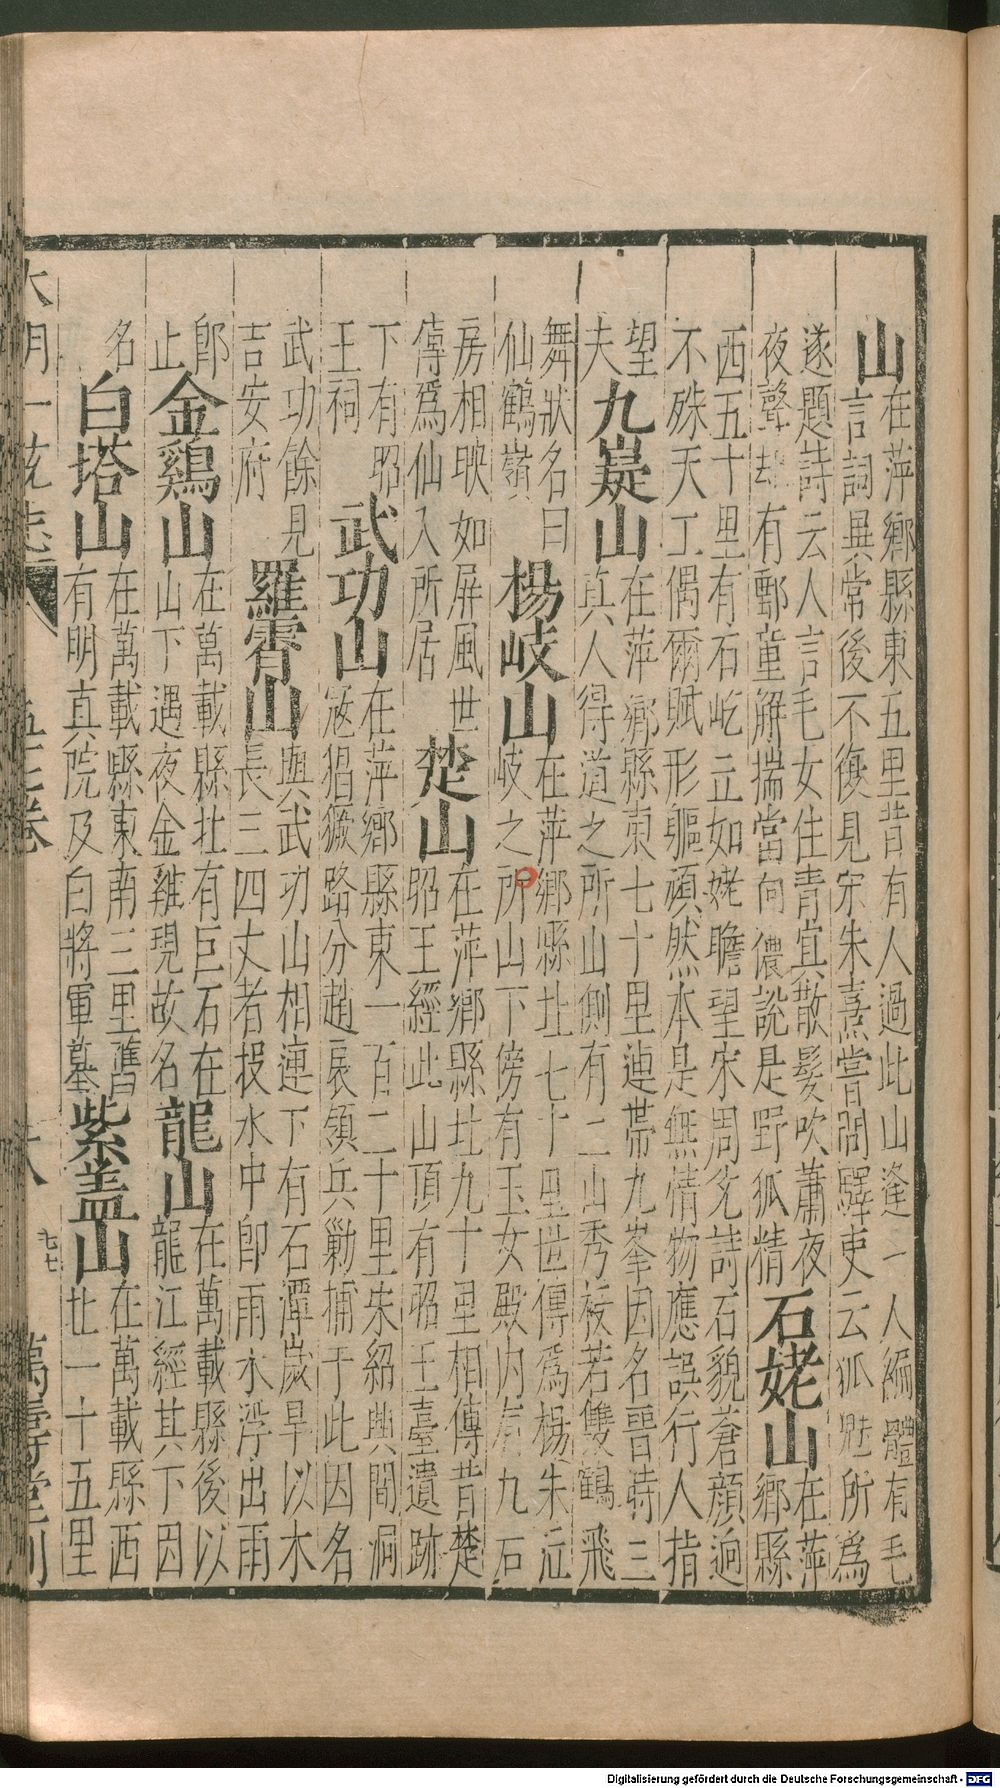 山在萍鄉縣東五里昔有人過此山逢一人編體有毛
言詞異常後不復見宋朱熹嘗問驛吏云狐魅所為
遂題詩云人言毛女住青冥散髮吹蕭夜
夜聲却有鄠童解揣當向儂說是野狐精石姥山在萍
鄉縣
西五十里有石屹立如姥瞻望宋周必詩石貌蒼顔逈
不殊天工偶爾賦形軀頑然本是無情物應誤行人指
望
夫九嶷山在萍鄉縣東七十里連帶九峯因名晋時三
真人得道之所山側有二山秀抜若雙鶴飛
舞狀名曰
仙鶴嶺楊岐山在萍鄉縣北七十里世傳為楊朱泣
岐之所山下傍有玉女殿内有九石
房相映如屏風世
傳為仙人所居楚山在萍鄉縣北九十里相傳昔楚
昭王經此山頂有昭王臺遺跡
下有昭
王祠武功山在萍鄉縣東一百二十里宋紹興間洞
寇猖獗路分趙扆領兵勦捕于此因名
武功餘見
吉安府羅霄山與武功山相連下有石潭歲旱以木
長三四丈者投水中即雨水浮出雨
即
止金鷄山在萬載縣北有巨石在
山下遇夜金雞現故名龍山在萬載縣後以
龍江經其下因
名白塔山在萬載縣東南三里舊
有明真院及白將軍墓紫盖山在萬載縣西
北一十五里
大明一統志 五十七卷 十八 七七 萬壽堂刊
Digitalisierung gefördert durch die Deutsche Forschungsgemeinschaft - DFG